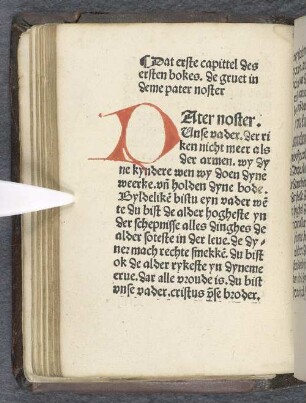 ¶Dat erste capittel des
ersten bokes. de gruet in
deme pater noster
PAter noster.
Unse vader. der ri
ken nicht meer als
der armen. wy dy
ne kyndere wen wy doen dyne
werke. vñ holden dyne bode.
Byldelikē bistu eyn vader wē
te du bist de alder hogheste yn
der schepnisse alles dinghes de
alder soteste in der leue. de dy-
ner mach rechte smekkē. du bist
ok de alder rykeste yn dyneme
erue. dar alle vroude is. du bist
vnse vader. cristus vse broder.